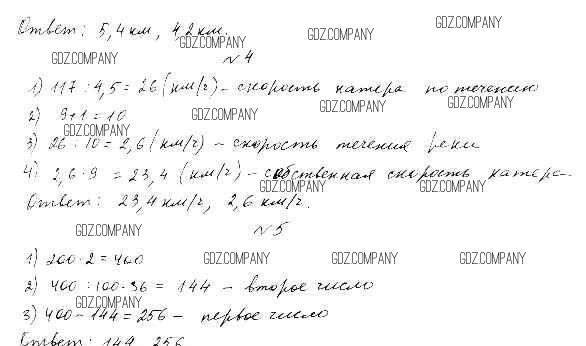 Ответ: 5,4 км, 4,2 км.
GDZ.COMPANY GDZ.COMPANY GDZ.COMPANY
GDZ.COMPANY №4
1) 117 : 4,5 = 26 (км/ч) – скорость катера по течению
GDZ.COMPANY GDZ.COMPANY
2) 9+1 = 10 GDZ.COMPANY
GDZ.COMPANY
3) 26 : 10 = 2,6 (км/ч) – скорость течения реки
4) 2,6 · 9 = 23,4 (км/ч) – собственная скорость катера
GDZ.COMPANY GDZ.COMPANY
Ответ: 23,4 км/ч, 2,6 км/ч.
GDZ.COMPANY №5
1) 200 · 2 = 400 GDZ.COMPANY GDZ.COMPANY GDZ.COMPANY
2) 400 : 100 · 36 = 144 – второе число
GDZ.COMPANY
3) 400 – 144 = 256 – первое число
Ответ: 144, 256